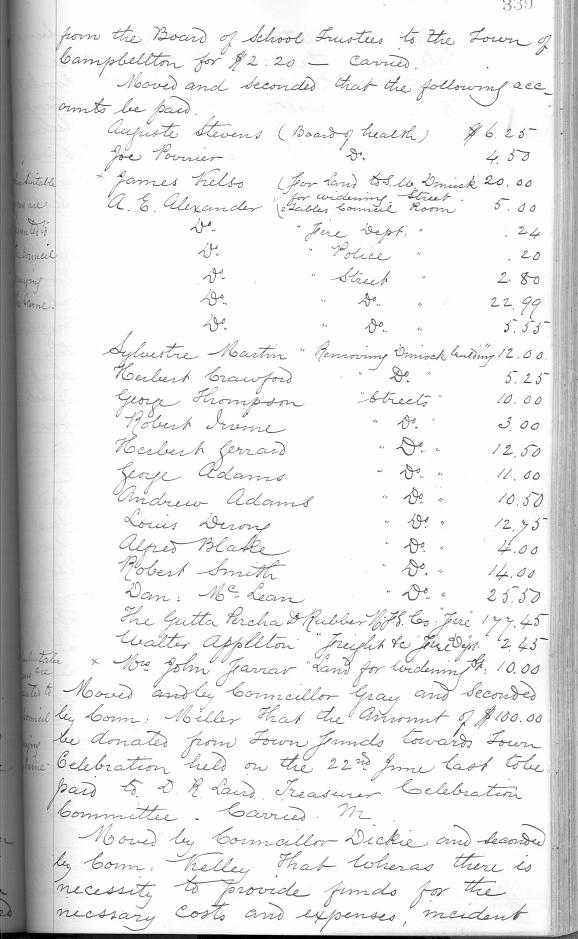 339
from the Board of School Trustees to the Town of
Campbellton for $2.20 — carried.
Moved and seconded that the following acc-
ounts be paid.
Auguste Stevens (Board of health) $6.25
Joe Poirier Do. 4.50
x James Kelso (for Land to S. W. Dimock 20.00
for widening Street
A. E. Alexander (Tables Council Room 5.00
Do. " Fire Dept. " .24
Do. " Police " .20
Do. " Street " 2.80
Do. " Do. " 22.99
Do. " Do. " 5.55
Sylvestre Martin " Removing Dimock building " 12.00
Herbert Crawford " Do. " 5.25
George Thompson " Streets " 10.00
Robert Irvine " Do. " 3.00
Herbert Gerrard " Do. " 12.50
George Adams " Do. " 11.00
Andrew Adams " Do. " 10.50
Louis " Do. " 12.75
Alfred Blake " Do. " 4.00
Robert Smith " Do. " 14.00
Dan. McLean " Do. " 25.50
The Gutta Percha & Rubber Mfg. Co. Fire 177.45
Walter Appleton " Freight &c Fire Dept. 2.45
x Mrs John Farrar " Land for widening St. 10.00
Moved and by Councillor Gray and Seconded
by Coun. Miller That the Amount of $100.00
be donated from Town funds towards Town
Celebration held on the 22nd June last to be
paid to D. R. Laird Treasurer Celebration
Committee. Carried.
Moved by Councillor Dickie and seconded
by Coun. Kelley That Wheras there is
necessity to provide funds for the
necssary costs and expenses, incident